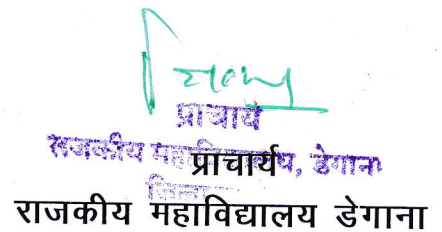 प्राचार्य
राजकीय महाविद्यालय, डेगाना
प्राचार्य
राजकीय महाविद्यालय डेगाना